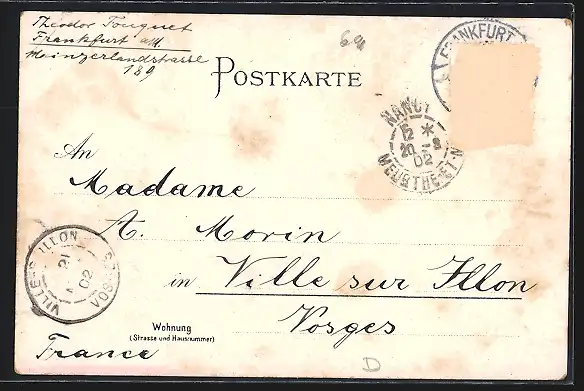 Theodor Fouquet
Frankfurt a/M.
Mainzerlandstrasse
189
64
POSTKARTE
FRANKFURT
NANCY
12 *
20 -3
02
MEURTHE-ET-M
An
Madame
A. Morin
in Ville sur Illon
Vosges
France
VILLE-S-ILLON
21
02
VOSGES
Wohnung
(Strasse und Hausnummer)
D